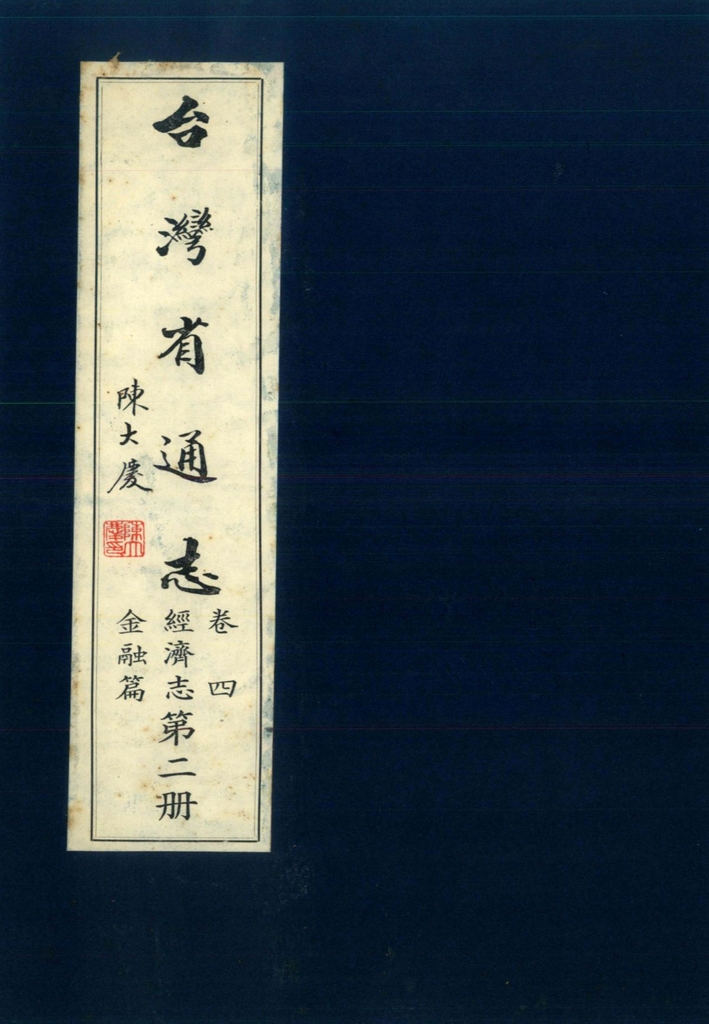 台灣省通志
卷四
經濟志第二册
金融篇
陳大慶